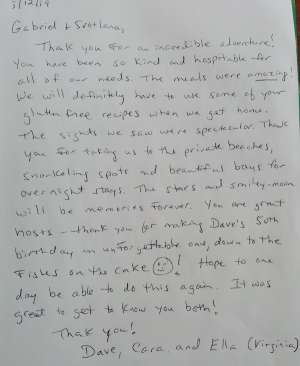 3/12/19
Gabriel + Svetlana,
Thank you for an incredible adventure!
You have been so kind and hospitable for
all of our needs. The meals were amazing!
We will definitely have to use some of your
glutten free recipes when we get home.
The sights we saw were spectacular. Thank
you for taking us to the private beaches,
snorkeling spots and beautiful bays for
overnight stays. The stars and smiley-moon
will be memories forever. You are great
hosts - thank you for making Dave's 50th
birthday an unforgettable one, down to the
fishes on the cake ☺! Hope to one
day be able to do this again. It was
great to get to know you both!
Thank you!
Dave, Cara and Ella (Virginia)